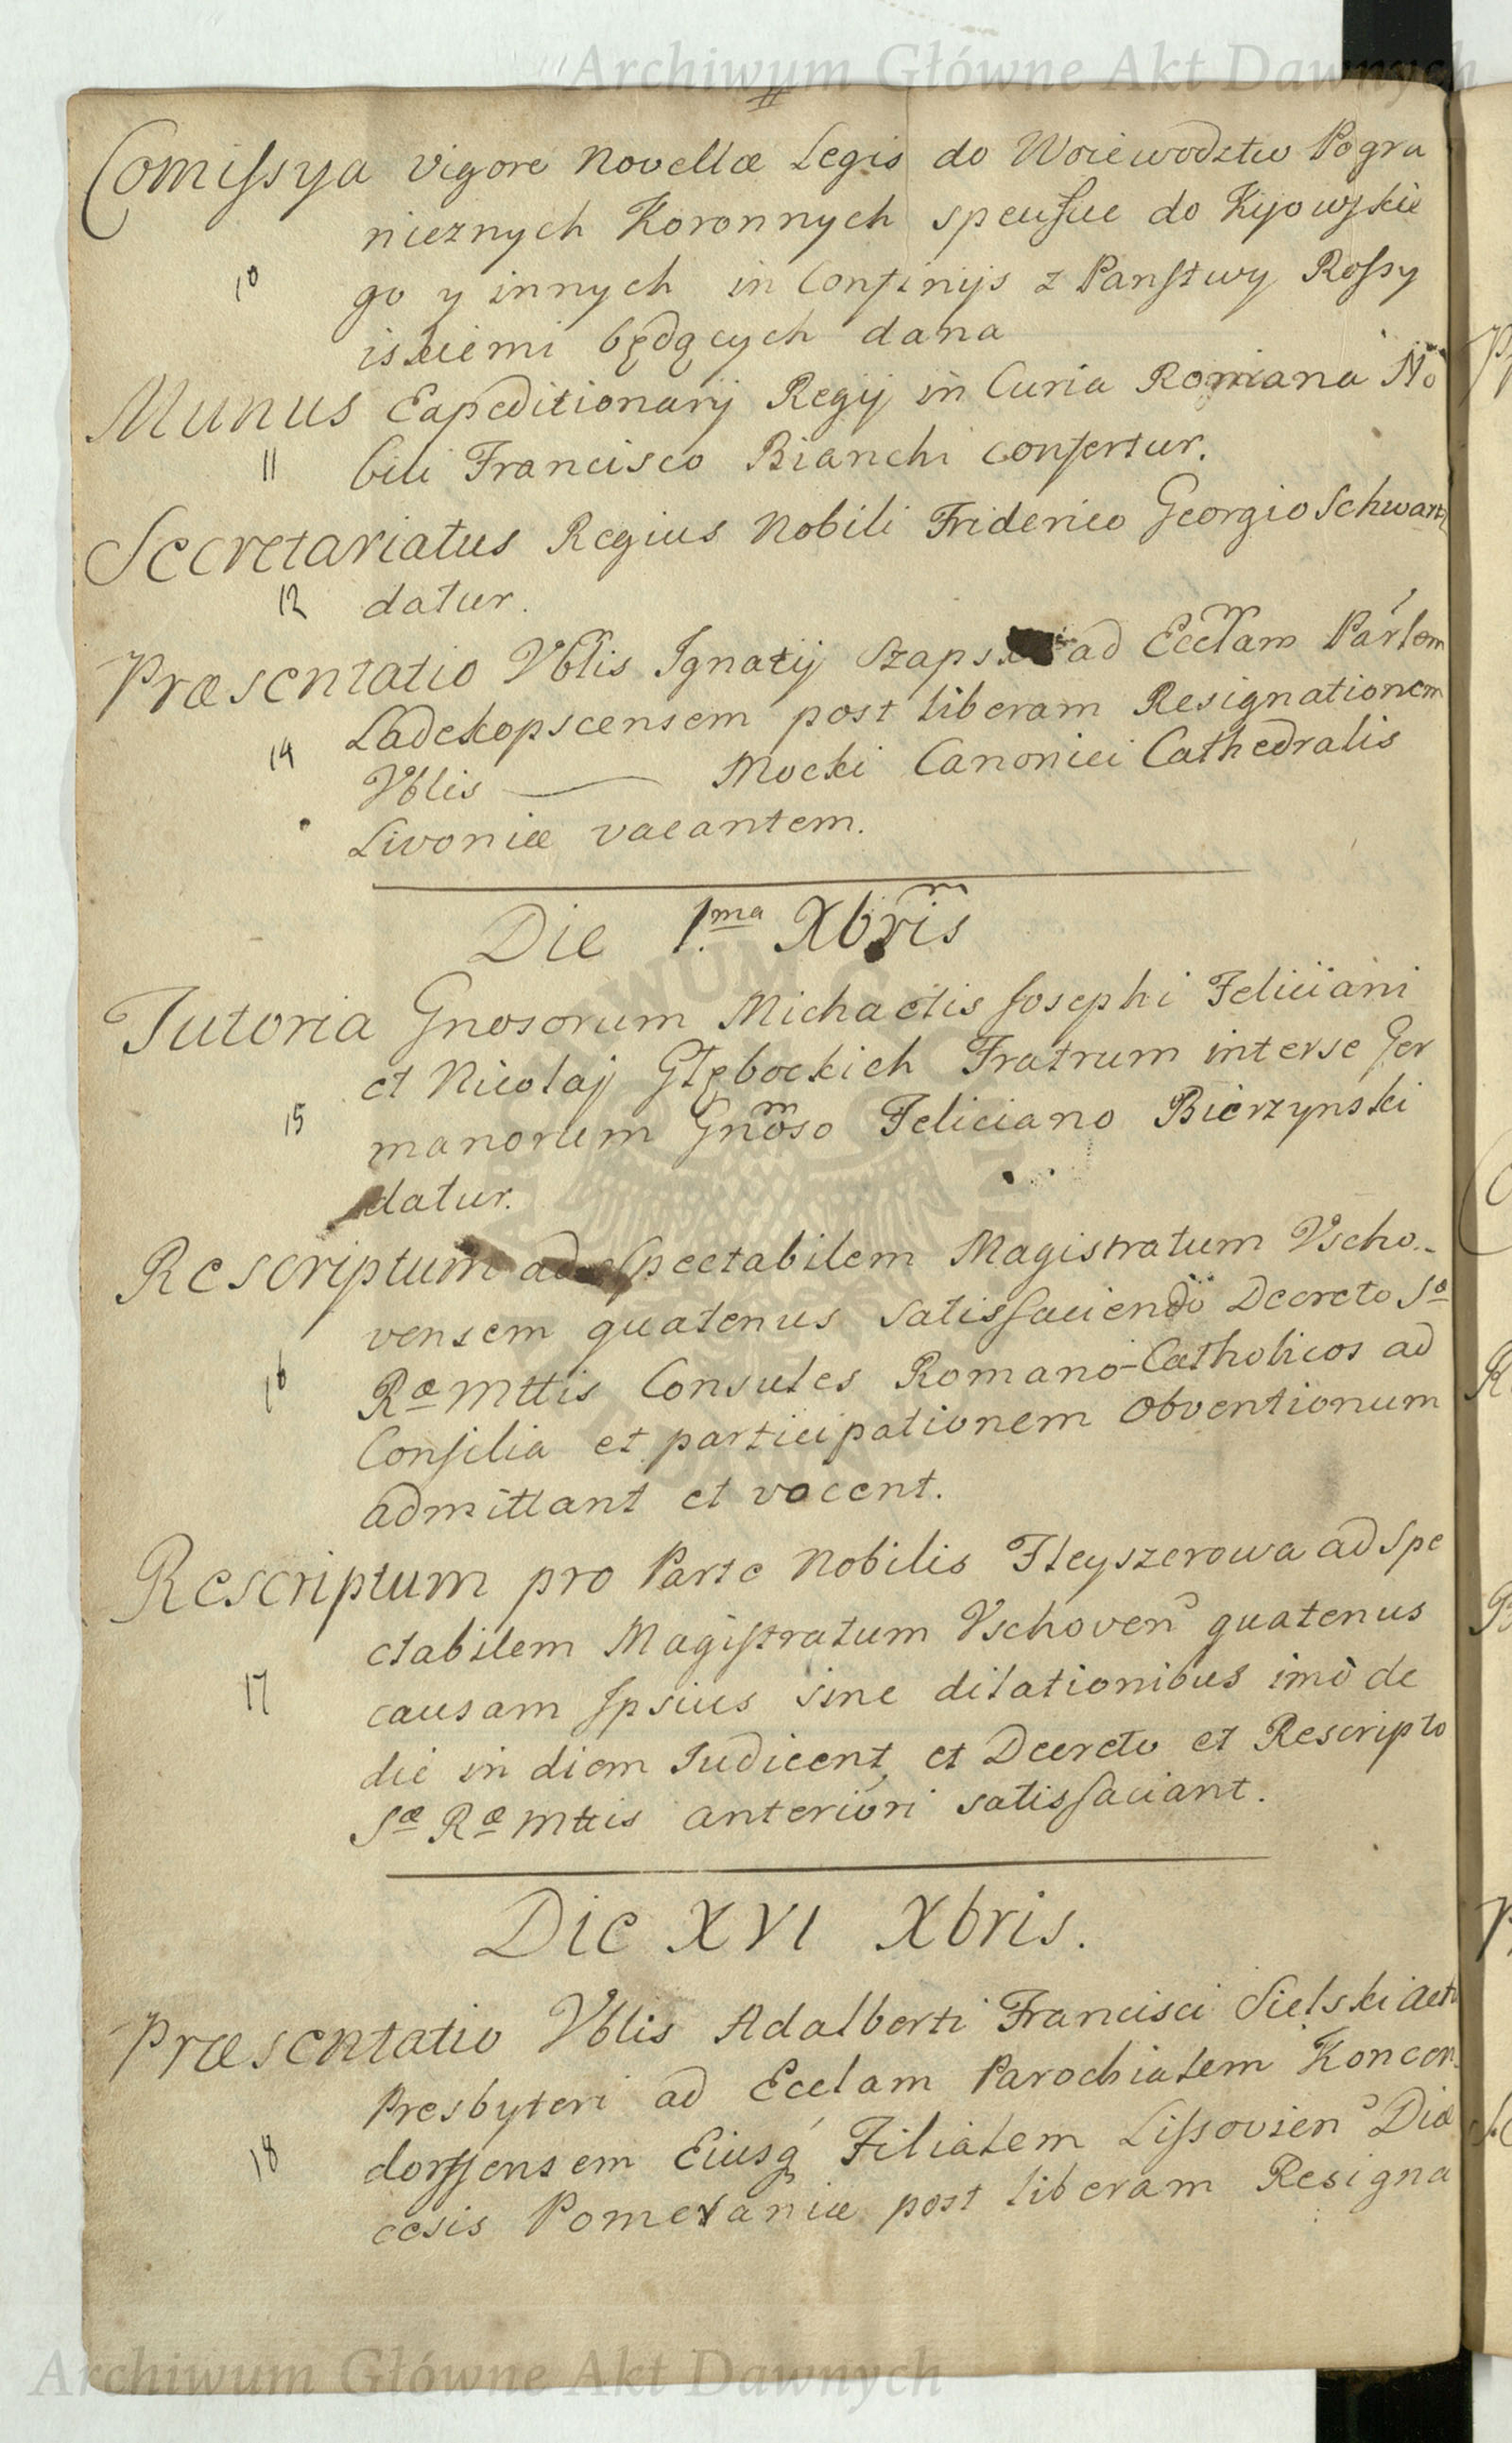 Archiwum Główne Akt Dawnych
Comissya vigore Novellæ Legis do Woiewodztw Pogra
nicznych Koronnych spcufue do Kyowskie
10 go y innych in Confinijs z Panstwy Rossy
iskiemi będących dana
Munus Expeditionarij Regij in Curia Romana No
11 bili Francisco Bianchi confertur.
Secretariatus Regius Nobili Friderico Georgio Schwartz
12 datur.
Præsentatio Vblis Ignatij ad Ecclam Parlem
Ladekopscensem post liberam Resignationem
14 Vblis — Mocki Canonici Cathedralis
Livoniæ vacantem.
Die 1.ma Xbris
Tutoria Gnosorum Michaelis Josephi Feliciani
et Nicolaj Głębockich Fratrum interse Ger
15 manorum Gnoso Feliciano Bierzynski
datur.
Rescriptum ad Spectabilem Magistratum Vscho-
vensem quatenus satisfaciendo Decreto Sæ
16 Ræ Mttis Consules Romano-Catholicos ad
Consilia et participationem obventionum
admittant et vocent.
Rescriptum pro Parte Nobilis Fleyszerowa ad Spe
ctabilem Magistratum Vschoven quatenus
17 causam Ipsius sine dilationibus imò de
die in diem Iudicent, et Decreto et Rescripto
Sæ Ræ Mttis anteriori satisfaciant.
Die XVI Xbris.
Præsentatio Vblis Adalberti Francisci Sielski
Presbyteri ad Ecclam Parochialem Koncen
18 dorffensem Eiusq Filialem Lissovien Diæ
cesis Pomeraniæ post liberam Resigna
Archiwum Główne Akt Dawnych